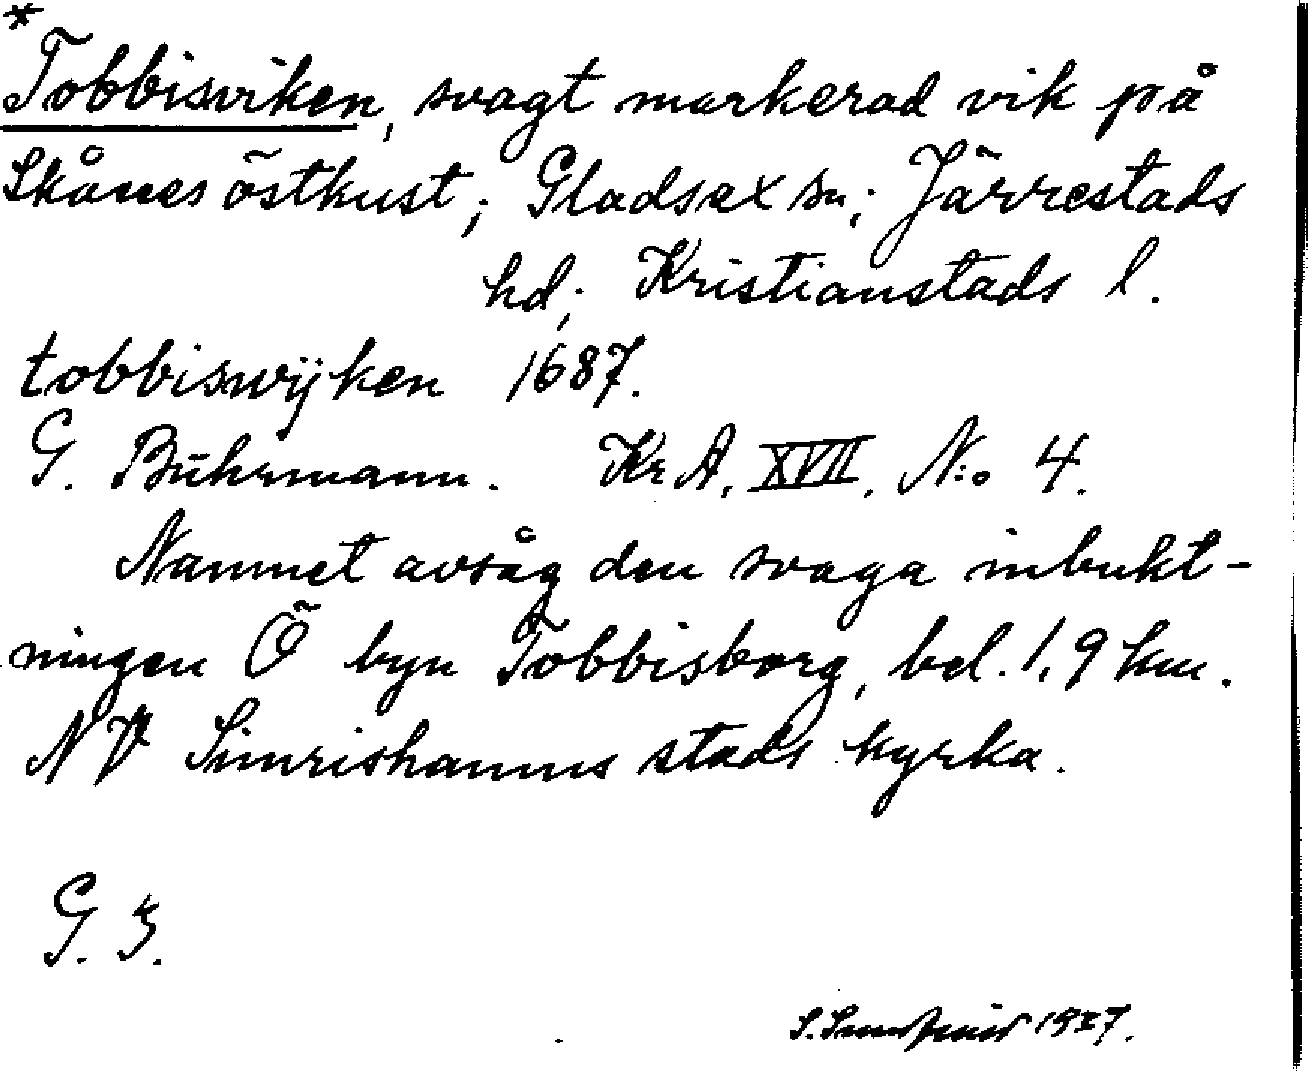 *
Tobbisviken, svagt markerad vik på
Skånes östkust; Gladsax sn; Järrestads
hd; Kristianstads l.
tobbiswijken 1687.
G. Buhrmann. Kr A, XVII, N:o 4.
Namnet avsåg den svaga inbukt-
ningen Ö byn Tobbisborg, bel. 1,9 km.
NV Simrishamns stads kyrka.
G. 3.
S. 1927.